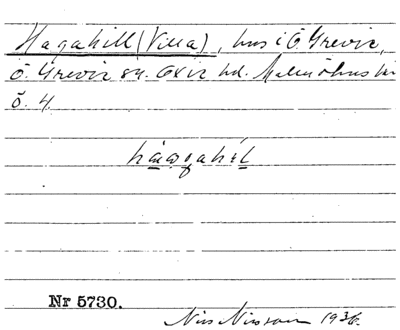 Hagahill (Villa), hus i Ö. Grevie,
Ö. Grevie sn. Oxie hd. Malmöhus län
Ö. 4.
Nr 5730.
Nils Nilsson 1936.